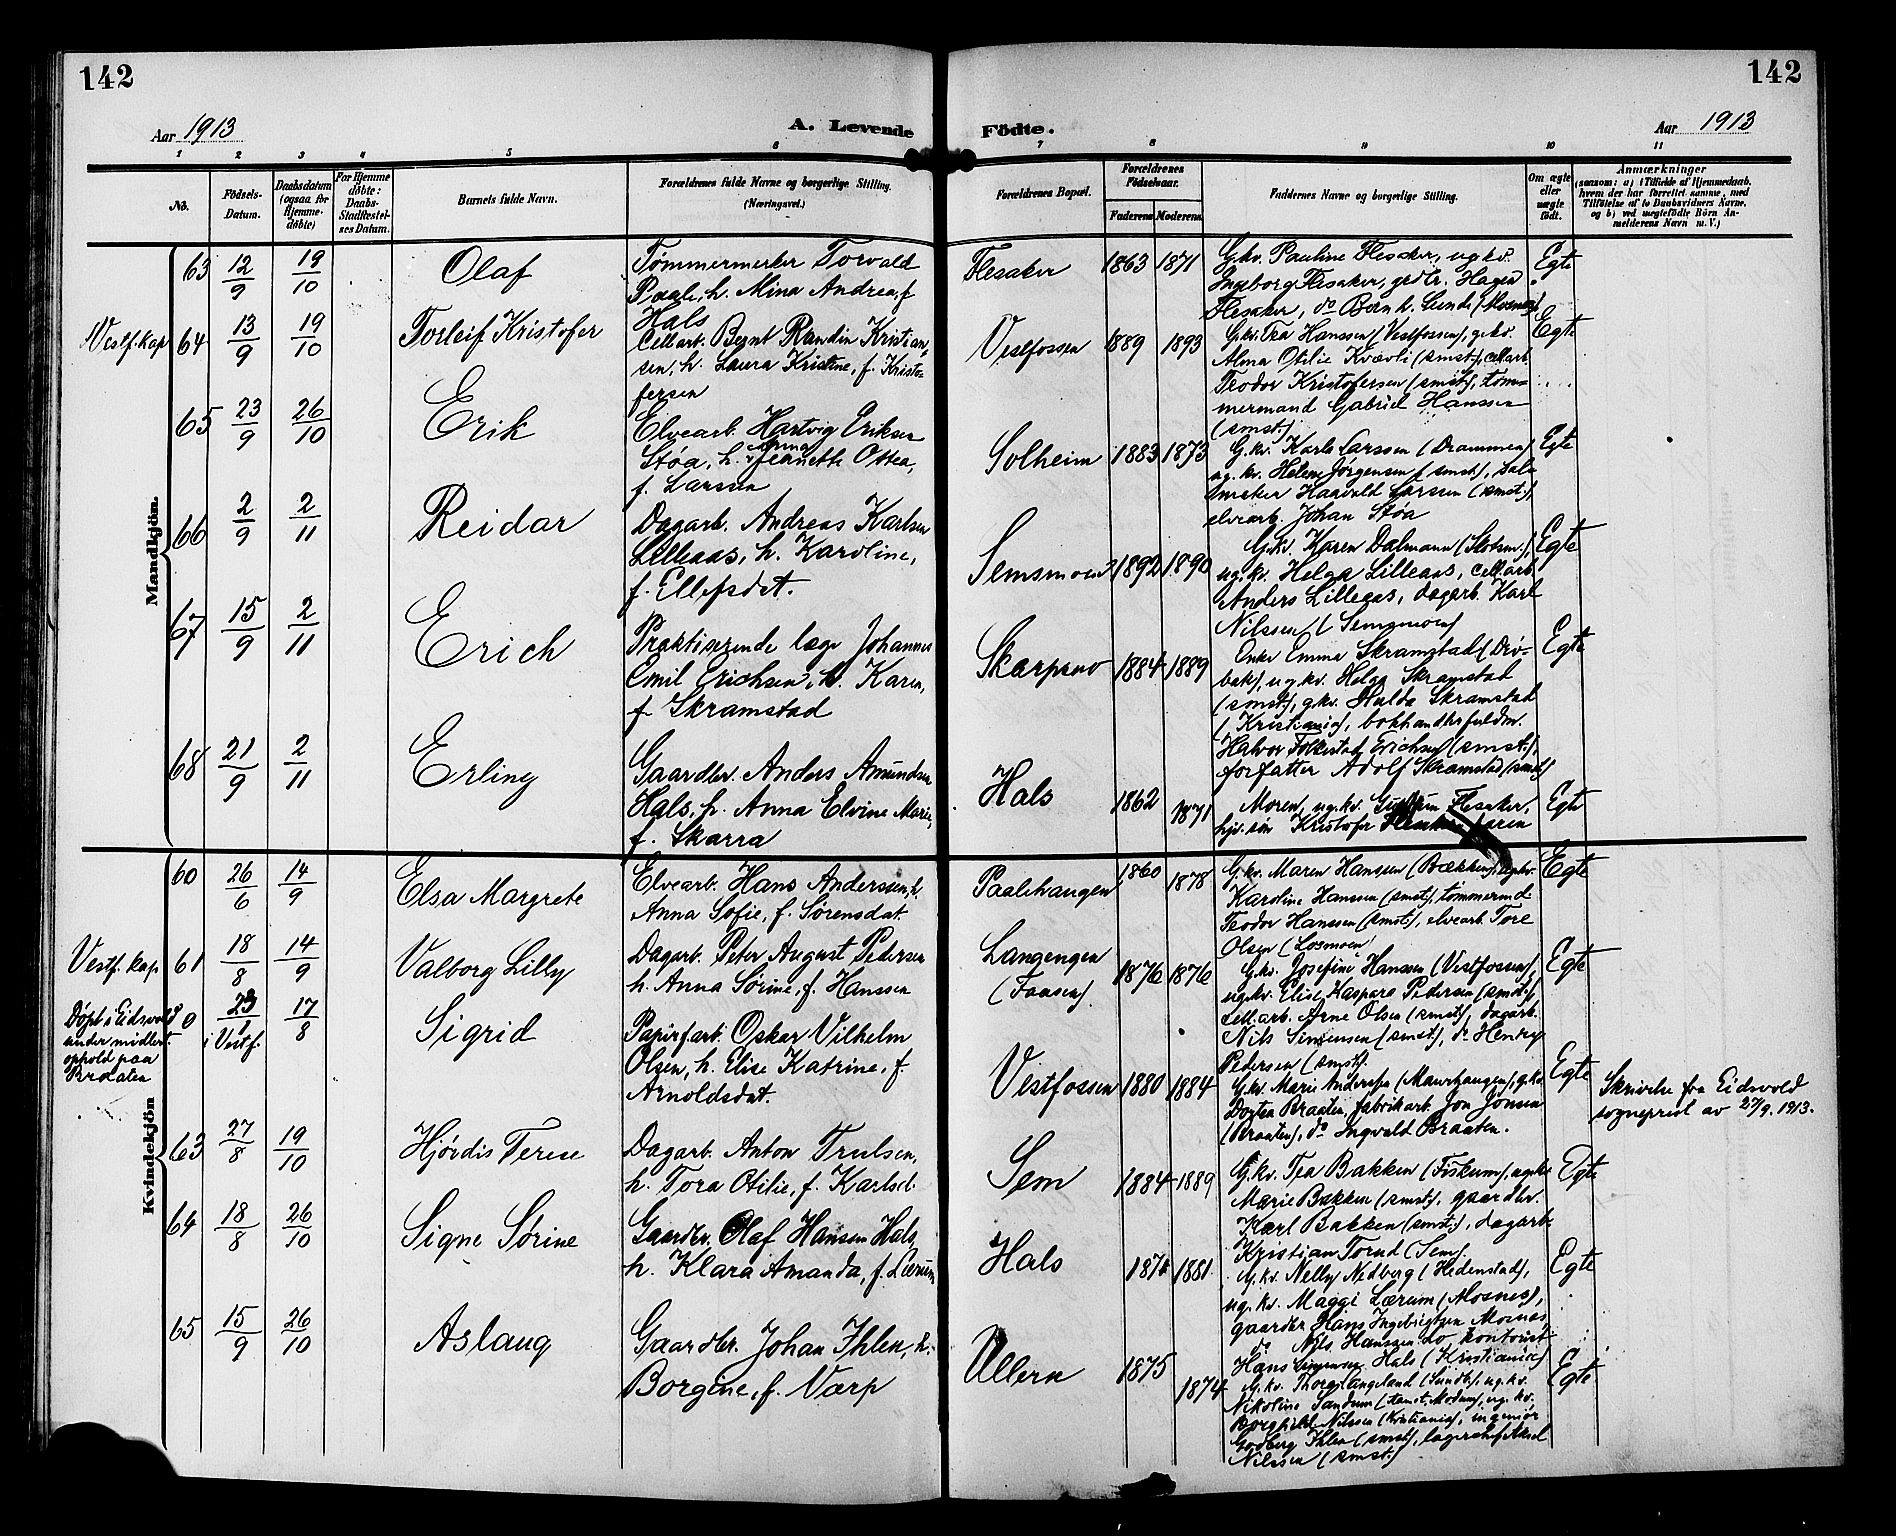 142
142
Aar 1913
A. Levende
Födte.
Aar 1913
1 2 3 4 5 6 7 8 9 10 11
No.
Födsels-
Datum.
Daabsdatum
(ogsaa for
Hjemme-
döbte)
For Hjemme
döbte:
Daabs-
Stadfæstel-
ses Datum.
Barnets fulde Navn.
Forældrenes fulde Navne og borgerlige Stilling.
(Næringsvei.)
Forældrenes Bopæl.
Forældrenes
Födselsaar.
Faderens
Moderens
Faddernes Navne og borgerlige Stilling.
Om ægte
eller
uægte
födt.
Anmærkninger
(saasom: a) i Tilfælde af Hjemmedaab,
hvem der har forrettet samme, med
Tilföielse af to Daabsvidners Navne,
og b) ved uægtefödte Börn An-
melderens Navn m. V.)
Mandkjön.
63 12/9 19/10 Olaf
Tømmermerker Torvald
Paale, h. Mina Andrea, f
Hals
Flesaker 1863 1871
G.kv. Pauline Flesaker, ug.kv.
Ingeborg Flesaker, grdbr. Hagen
Flesaker, do Bernh. Lunde (Mosnes)
Egte
Vestf. kap 64 13/9 19/10 Torleif Kristofer
Cellarb. Bernt Randin Kristian-
sen, h. Laura Kristine, f. Kristo-
fersen
Vestfossen 1889 1893
G.kv. Tea Hanssen (Vestfossen), g.kv.
Alma Otilie Kvævli (smst), cellarb
Teodor Kristofersen (smst), tøm-
mermand Gabriel Hanssen
(smst.)
Egte
65 23/9 26/10 Erik
Elvearb. Hartvig Eriksen
Støa, h. Anna Jeanette Ottea,
f. Larsen
Solheim 1883 1873
G.kv. Karla Larssen (Drammen)
ug. kv. Helene Jørgensen (smst), sal-
smaker Haavald Larssen (smst.),
elvearb. Johan Støa
Egte
66 2/9 2/11 Reidar
Dagarb. Andreas Karlsen
Lilleaas, h. Karoline,
f. Ellefsdat.
Semsmoen 1892 1890
G.kv. Karen Dalmann (Slotsm.),
ug.kv. Helga Lilleaas, cell.arb.
Anders Lilleaas, dagarb. Karl
Nilssen (Semsmoen)
Egte
67 15/9 2/11 Erich
Praktiserende læge Johannes
Emil Erichsen, h. Karen,
f. Skramstad
1884 1889
Enke Emma Skramstad (Drø-
bak), ug.kv. Helga Skramstad
(smst), g.kv. Hulda Skramstad
(Kristiania), bokhandlerfuldm.
Halvor Folkestad Erichsen (smst.),
forfatter Adolf Skramstad (smst)
Egte
68 21/9 2/11 Erling
Gaardbr. Anders Amundsen
Hals, h. Anna Elvine Marie,
f. Skarra
Hals 1862 1871
Moren, ug.kv. Gudrun Flesaker,
Kristofer
Egte
Kvindekjön
60 26/6 14/9 Elsa Margrete
Elvearb. Hans Anderssen, h.
Anna Sofie, f. Sørensdat.
Paalehaugen 1860 1878
G.kv. Maren Hansen (Bækken), ug.kv.
Karoline Hanssen (smst), tømmermd
Teodor Hanssen (smst), elvearb. Tore
Olsen (Losmoen)
Egte
Vestf. kap 61 18/8 14/9 Valborg Lilly
Dagarb. Peter August Pedersen
h. Anna Sørine, f. Hanssen
Langengen
(Faasen) 1876 1876
G.kv. Josefine Hanssen (Vestfossen),
ug.kv. Elise Kaspara Pedersen (smst.),
cell.arb. Arne Olsen (smst), dagarb.
Nils Simensen (smst), do Henry
Pedersen (smst).
Egte
Døpt i Eidsvold
under midlert.
ophold paa
Braaten
0
i Vestf. 17/8 Sigrid
Papirf.arb. Oskar Vilhelm
Olsen, h. Elise Katrine, f.
Arnoldsdat.
Vestfossen 1880 1884
G.kv. Marie (Maurhaugen), g.kv
Braaten, fabrikarb. Jon Jonsen
(Braaten), do Ingvald Braaten.
Egte
Skrivelse fra Eidsvold
sogneprest av 27/9 1913.
63 27/8 19/10 Hjørdis Terese
Dagarb. Anton Trulsen,
h. Tora Otilie, f. Karlsd.
Sem 1884 1889
G.kv. Tea Bakken (Fiskum), ug.kv.
Marie Bakken (smst), gaardbr.
Karl Bakken (smst), dagarb.
Kristian Torud (Sem).
Egte
64 18/8 26/10 Signe Sørine
Gaardbr. Olaf Hansen Hals,
h. Klara Amanda, f. Lærum
Hals 1881
G.kv. Nelly Nedberg (Hedenstad),
ug.kv. Maggi Lærum (Mosnes),
gaardbr Hans Ingebrigtsen Mosnes,
do Nils Hanssen do, kontorist
Hans Hals (Kristiania)
Egte
65 15/9 26/10 Aslaug
Gaardbr. Johan Ihlen, h.
Borgine, f. Værp
Ullern 1875 1874
G.kv. Thora Langeland (Sundby), ug.kv.
Nikoline Sandum (Modum), ug.kv.
Borghild Nilssen (Kristiania), ingeniør
Godberg Ihlen (smst), lagerchef Aksel
Nilssen (smst.)
Egte